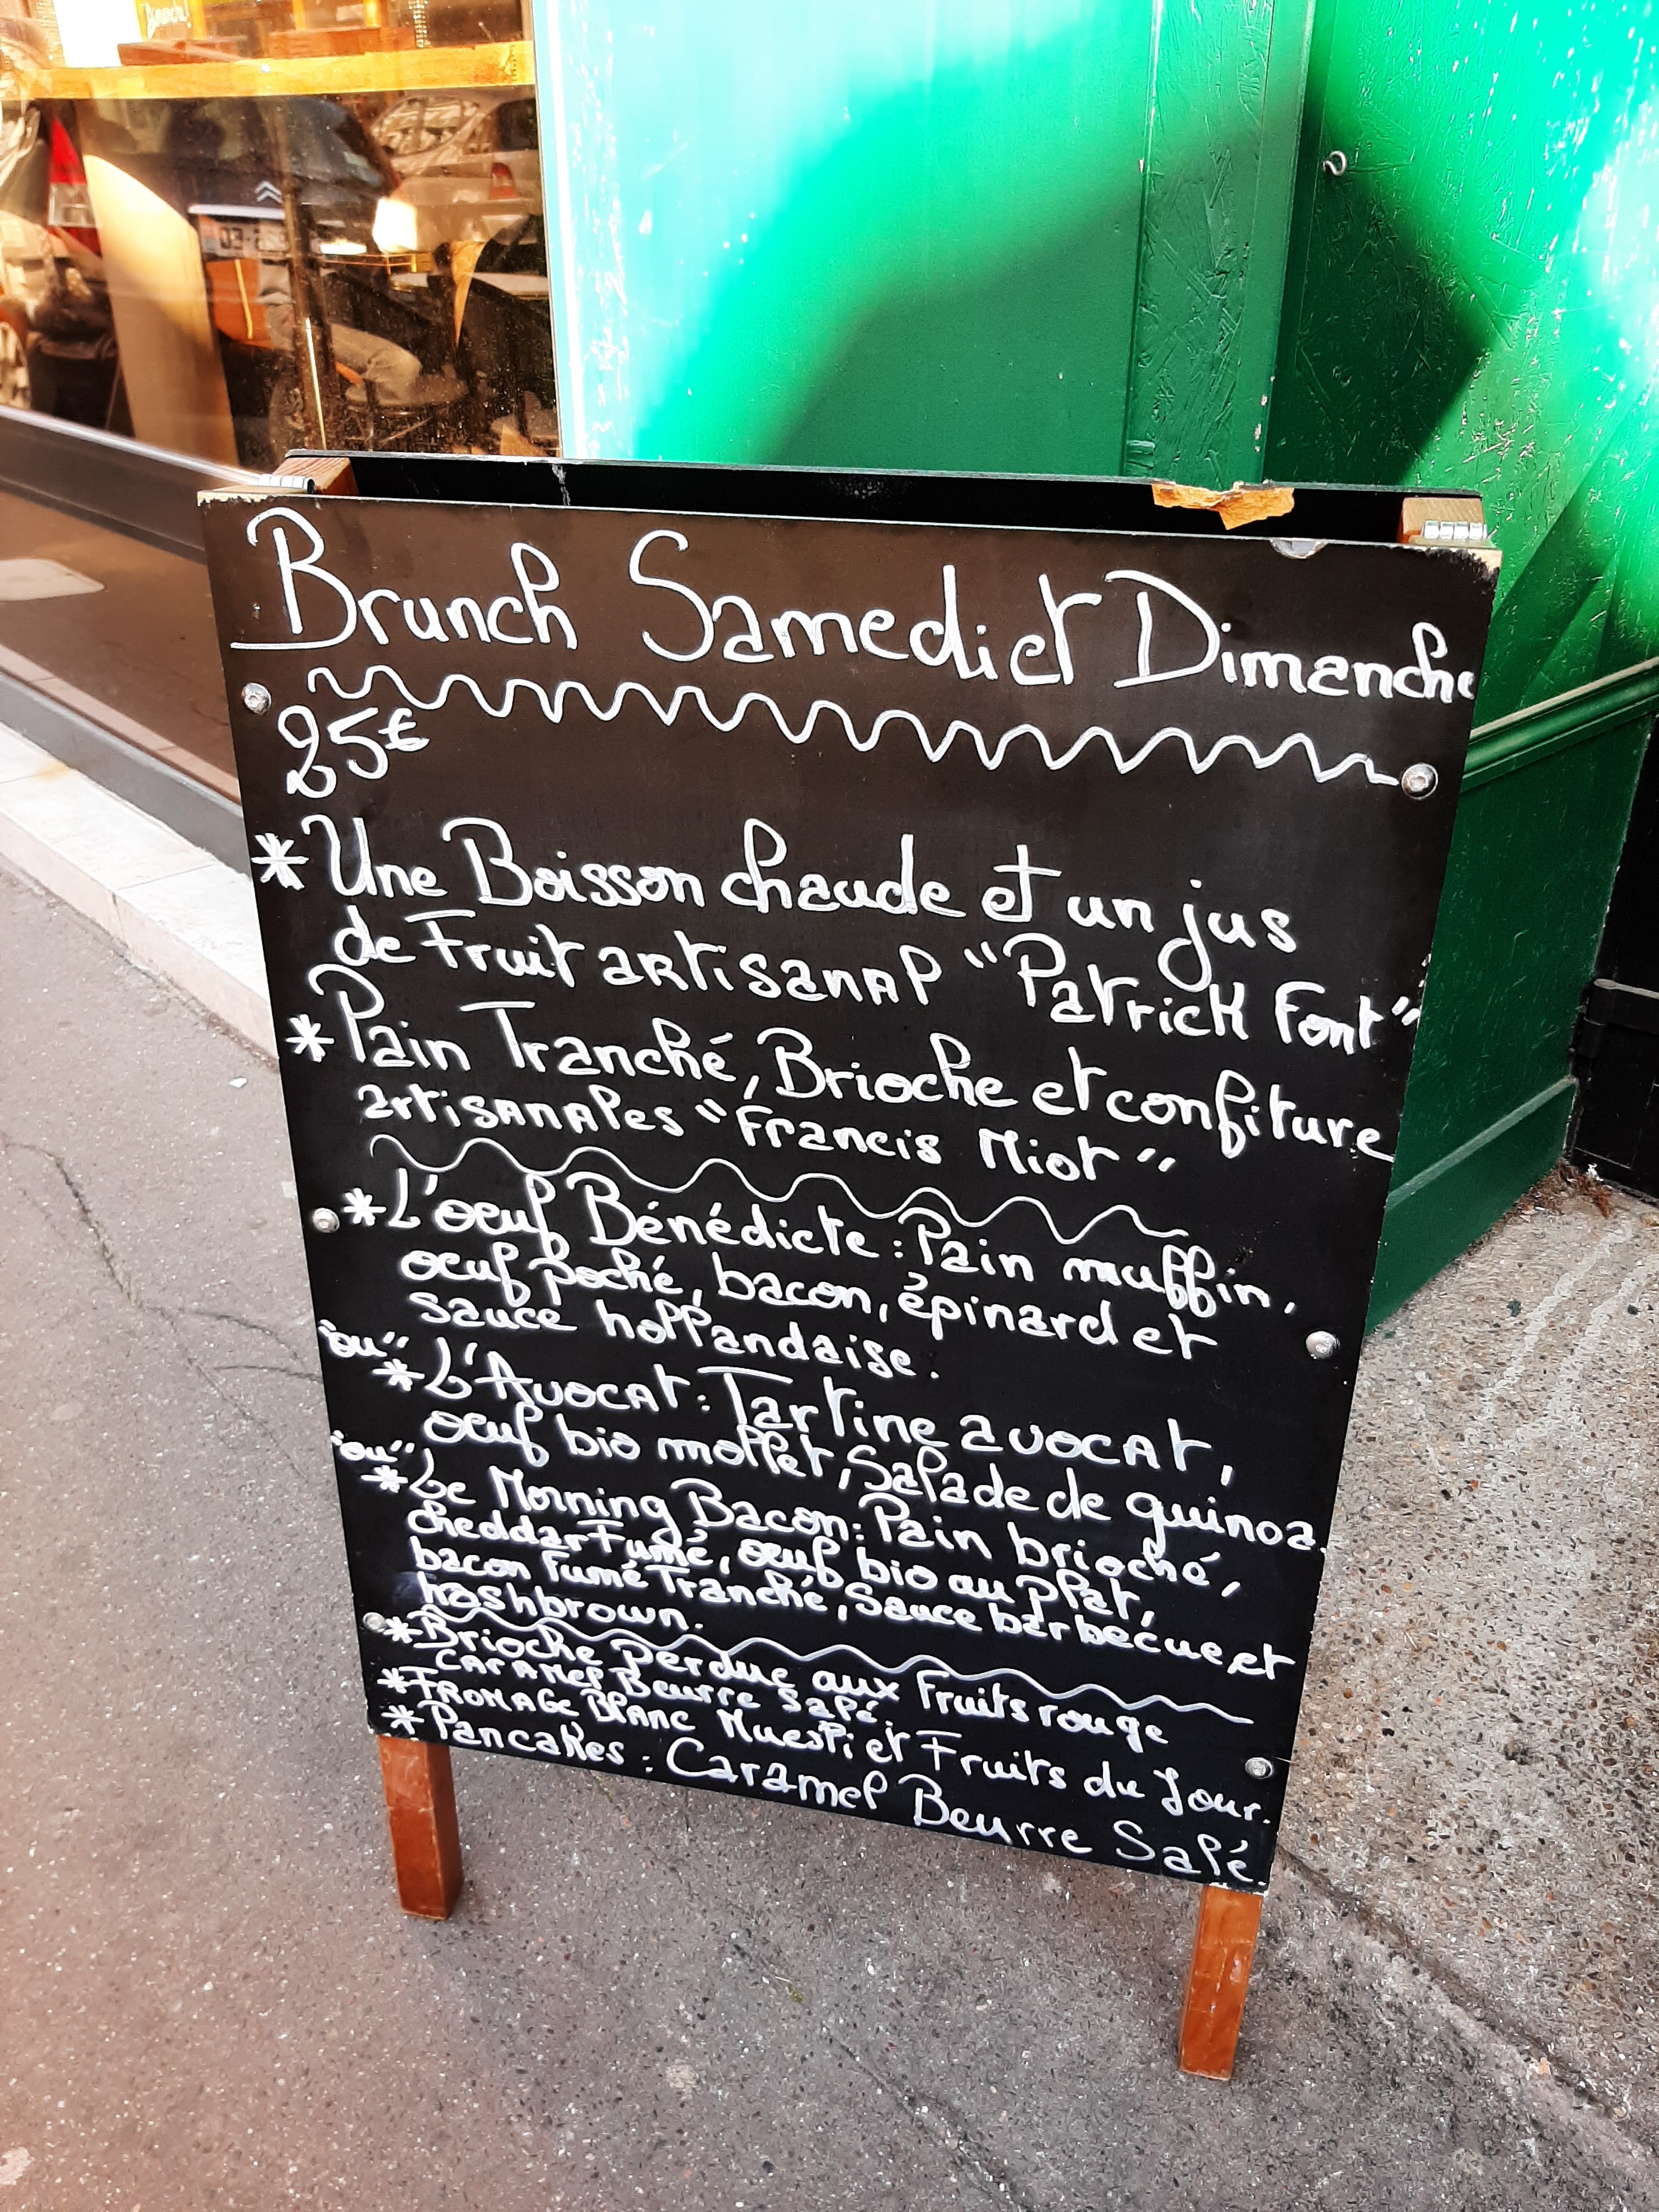 Brunch Samedi et Dimanche
25€
* Une Boisson chaude et un jus
de Fruit artisanal "Patrick Font"
* Pain Tranché, Brioche et confiture
artisanales "Francis Miot"
* L'oeuf Bénédicte : Pain muffin,
oeuf poché, bacon, épinard et
sauce hollandaise.
"ou"
* L'Avocat : Tartine avocat,
oeuf bio mollet, Salade de quinoa.
"ou"
* Le Morning Bacon : Pain brioché,
cheddar Fumé, oeuf bio au plat,
bacon Fumé Tranché, Sauce barbecue et
hashbrown.
* Brioche Perdue aux Fruits rouge
Caramel Beurre Salé.
* Fromage Blanc Muesli et Fruits du Jour.
* Pancakes : Caramel Beurre Salé.